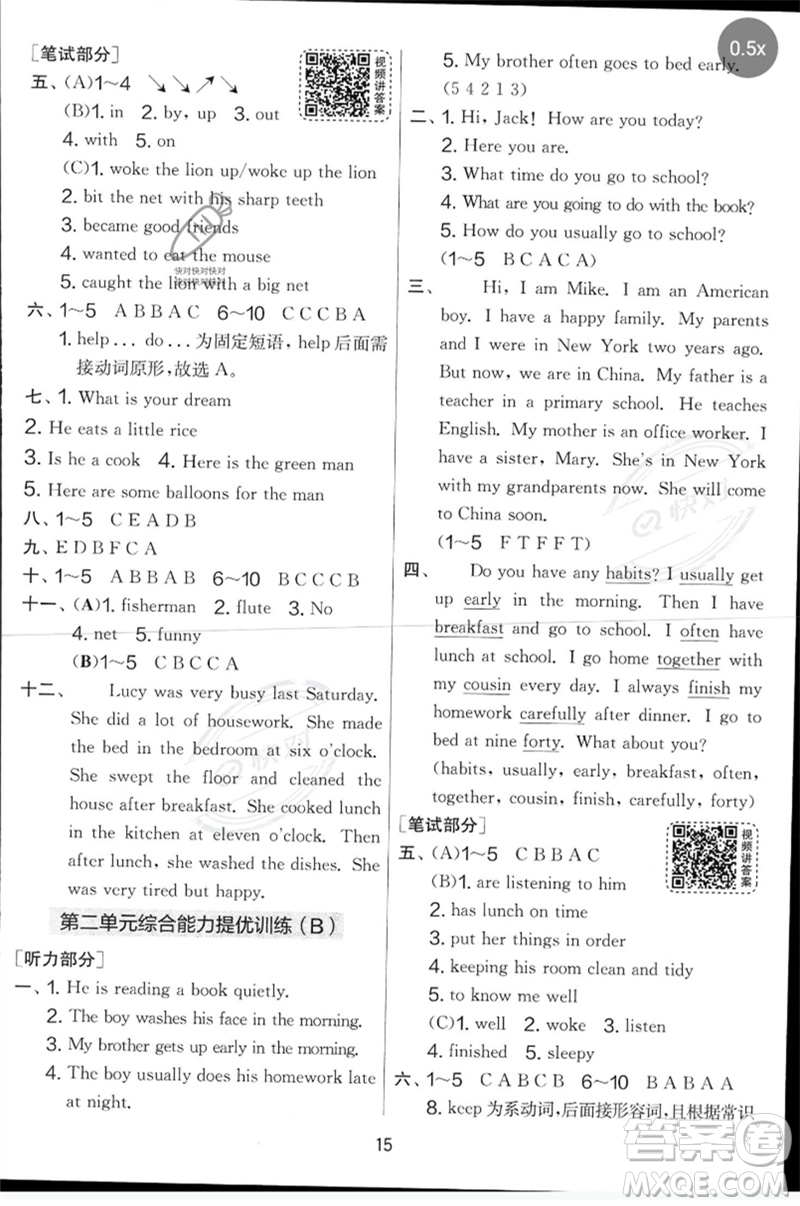 [笔试部分]
五、(A)1～4 ↘ ↘ ↗ ↘
(B)1. in 2. by, up 3. out
4. with 5. on
(C)1. woke the lion up/woke up the lion
2. bit the net with his sharp teeth
3. became good friends
4. wanted to eat the mouse
5. caught the lion with a big net
六、1～5 A B B A C 6～10 C C C B A
1. help... do...为固定短语, help后面需
接动词原形,故选A。
七、1. What is your dream
2. He eats a little rice
3. Is he a cook 4. Here is the green man
5. Here are some balloons for the man
八、1～5 C E A D B
九、E D B F C A
十、1～5 A B B A B 6～10 C B C C A
十一、(A)1. fisherman 2. flute 3. No
4. net 5. funny
(B)1～5 C B C C A
十二、 Lucy was very busy last Saturday.
She did a lot of housework. She made
the bed in the bedroom at six o'clock.
She swept the floor and cleaned the
house after breakfast. She cooked lunch
in the kitchen at eleven o'clock. Then
after lunch, she washed the dishes. She
was very tired but happy.
第二单元综合能力提优训练(B)
[听力部分]
一、1. He is reading a book quietly.
2. The boy washes his face in the morning.
3. My brother gets up early in the morning.
4. The boy usually does his homework late
at night.
视频讲答案
快对快对快对
快对快对快对
5. My brother often goes to bed early.
(5 4 2 1 3)
二、1. Hi, Jack! How are you today?
2. Here you are.
3. What time do you go to school?
4. What are you going to do with the book?
5. How do you usually go to school?
(1～5 B C A C A)
三、 Hi, I am Mike. I am an American
boy. I have a happy family. My parents
and I were in New York two years ago.
But now, we are in China. My father is a
teacher in a primary school. He teaches
English. My mother is an office worker. I
have a sister, Mary. She's in New York
with my grandparents now. She will come
to China soon.
(1～5 F T F F T)
四、 Do you have any habits? I usually get
up early in the morning. Then I have
breakfast and go to school. I often have
lunch at school. I go home together with
my cousin every day. I always finish my
homework carefully after dinner. I go to
bed at nine forty. What about you?
(habits, usually, early, breakfast, often,
together, cousin, finish, carefully, forty)
[笔试部分]
五、(A)1～5 C B B A C
(B)1. are listening to him
2. has lunch on time
3. put her things in order
4. keeping his room clean and tidy
5. to know me well
(C)1. well 2. woke 3. listen
4. finished 5. sleepy
六、1～5 C A B C B 6～10 B A B A A
8. keep为系动词,后面接形容词,且根据常识
视频讲答案
0.5x
快对
快对
15
答案卷
MXQE.COM